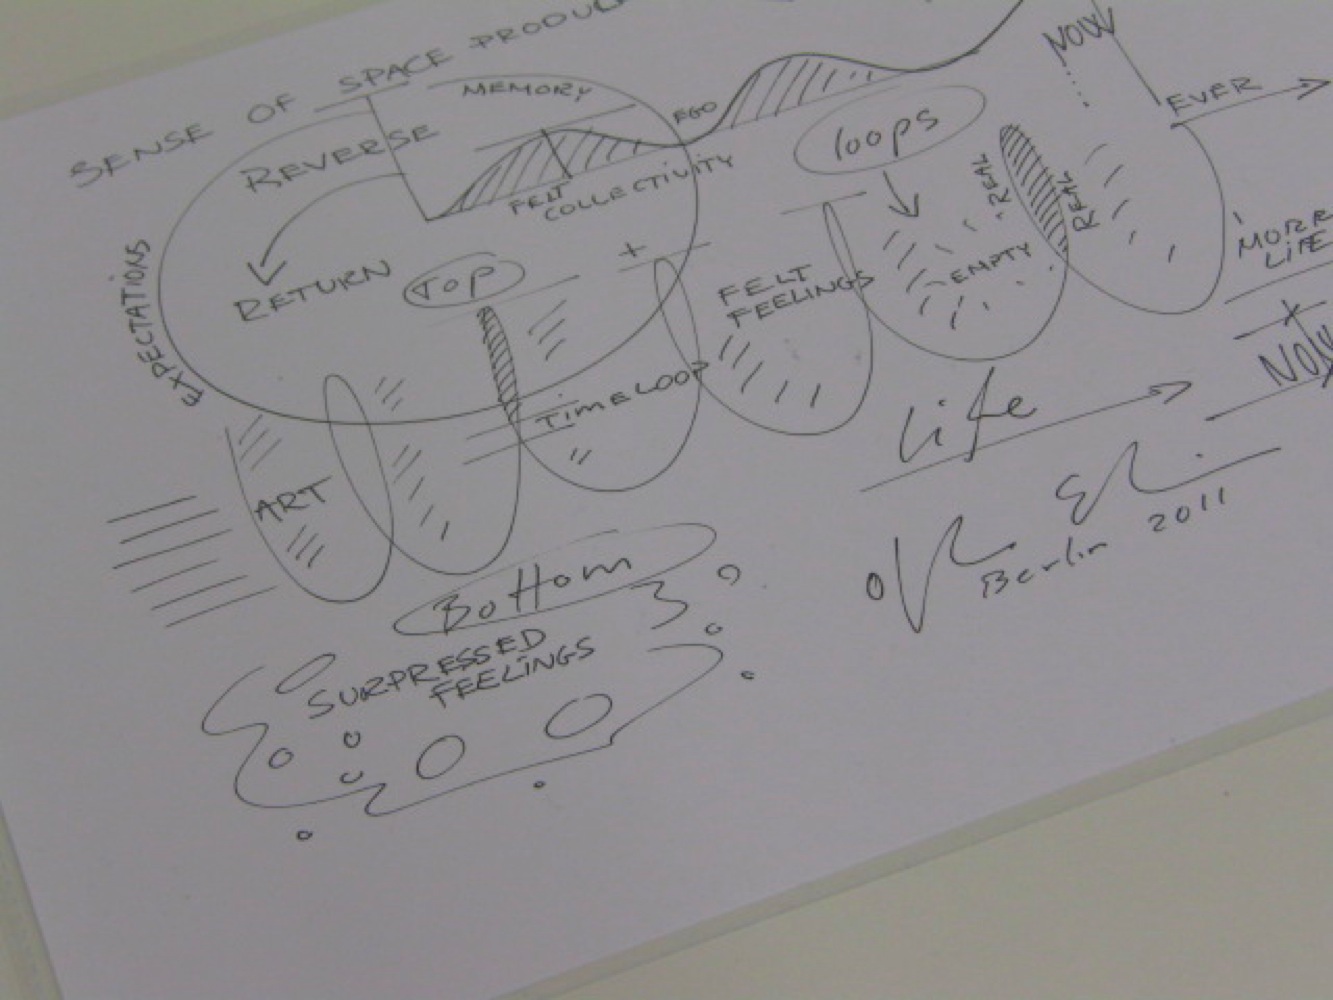 SENSE OF SPACE PRODU
MEMORY
REVERSE
EGO
FELT
COLLECTIVITY
loops
NOW
EVER
REAL
REAL
EMPTY
EXPECTATIONS
RETURN
TOP
+
FELT
FEELINGS
MORE
LIFE
+
NOW
TIMELOOP
Life
ART
Berlin 2011
Bottom
SURPRESSED
FEELINGS